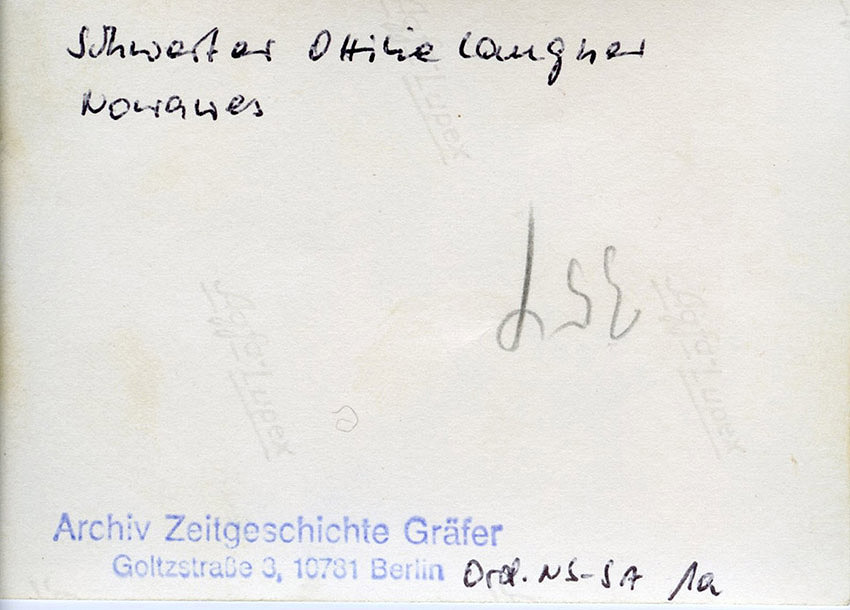 Schwester Ottilie Langner
Nowawes
Agfa-Lupex
Agfa-Lupex
Agfa-Lupex
Archiv Zeitgeschichte Gräfer
Goltzstraße 3, 10781 Berlin
Ord. NS-SA 1a